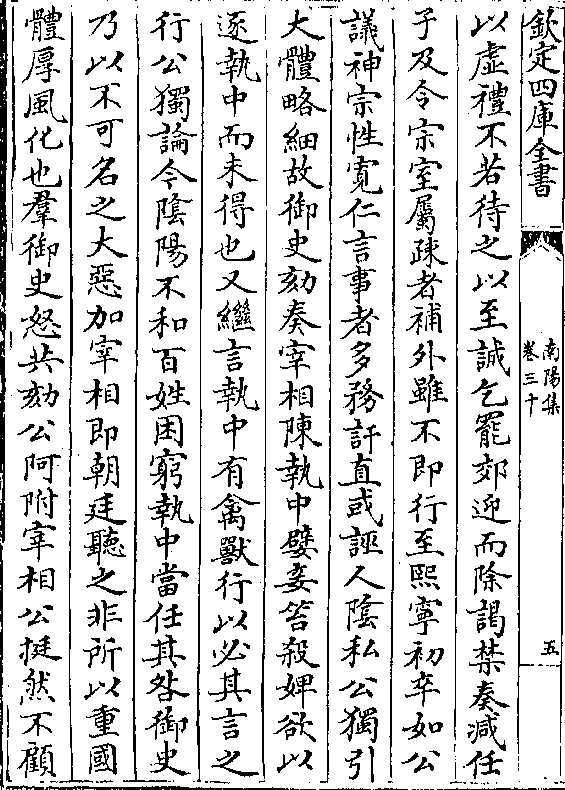 欽定四庫全書
南陽集
卷三十
五
以虛禮不若待之以至誠乞罷郊迎而除謁禁奏減任
子及令宗室屬疎者補外雖不即行至熙寧初卒如公
議神宗性寛仁言事者多務訐直或誣人陰私公獨引
大體略細故御史劾奏宰相陳執中嬖妾笞殺婢欲以
逐執中而未得也又繼言執中有禽獸行以必其言之
行公獨論今陰陽不和百姓困窮執中當任其咎御史
乃以不可名之大惡加宰相即朝廷聽之非所以重國
體厚風化也羣御史怒共劾公阿附宰相公挺然不顧